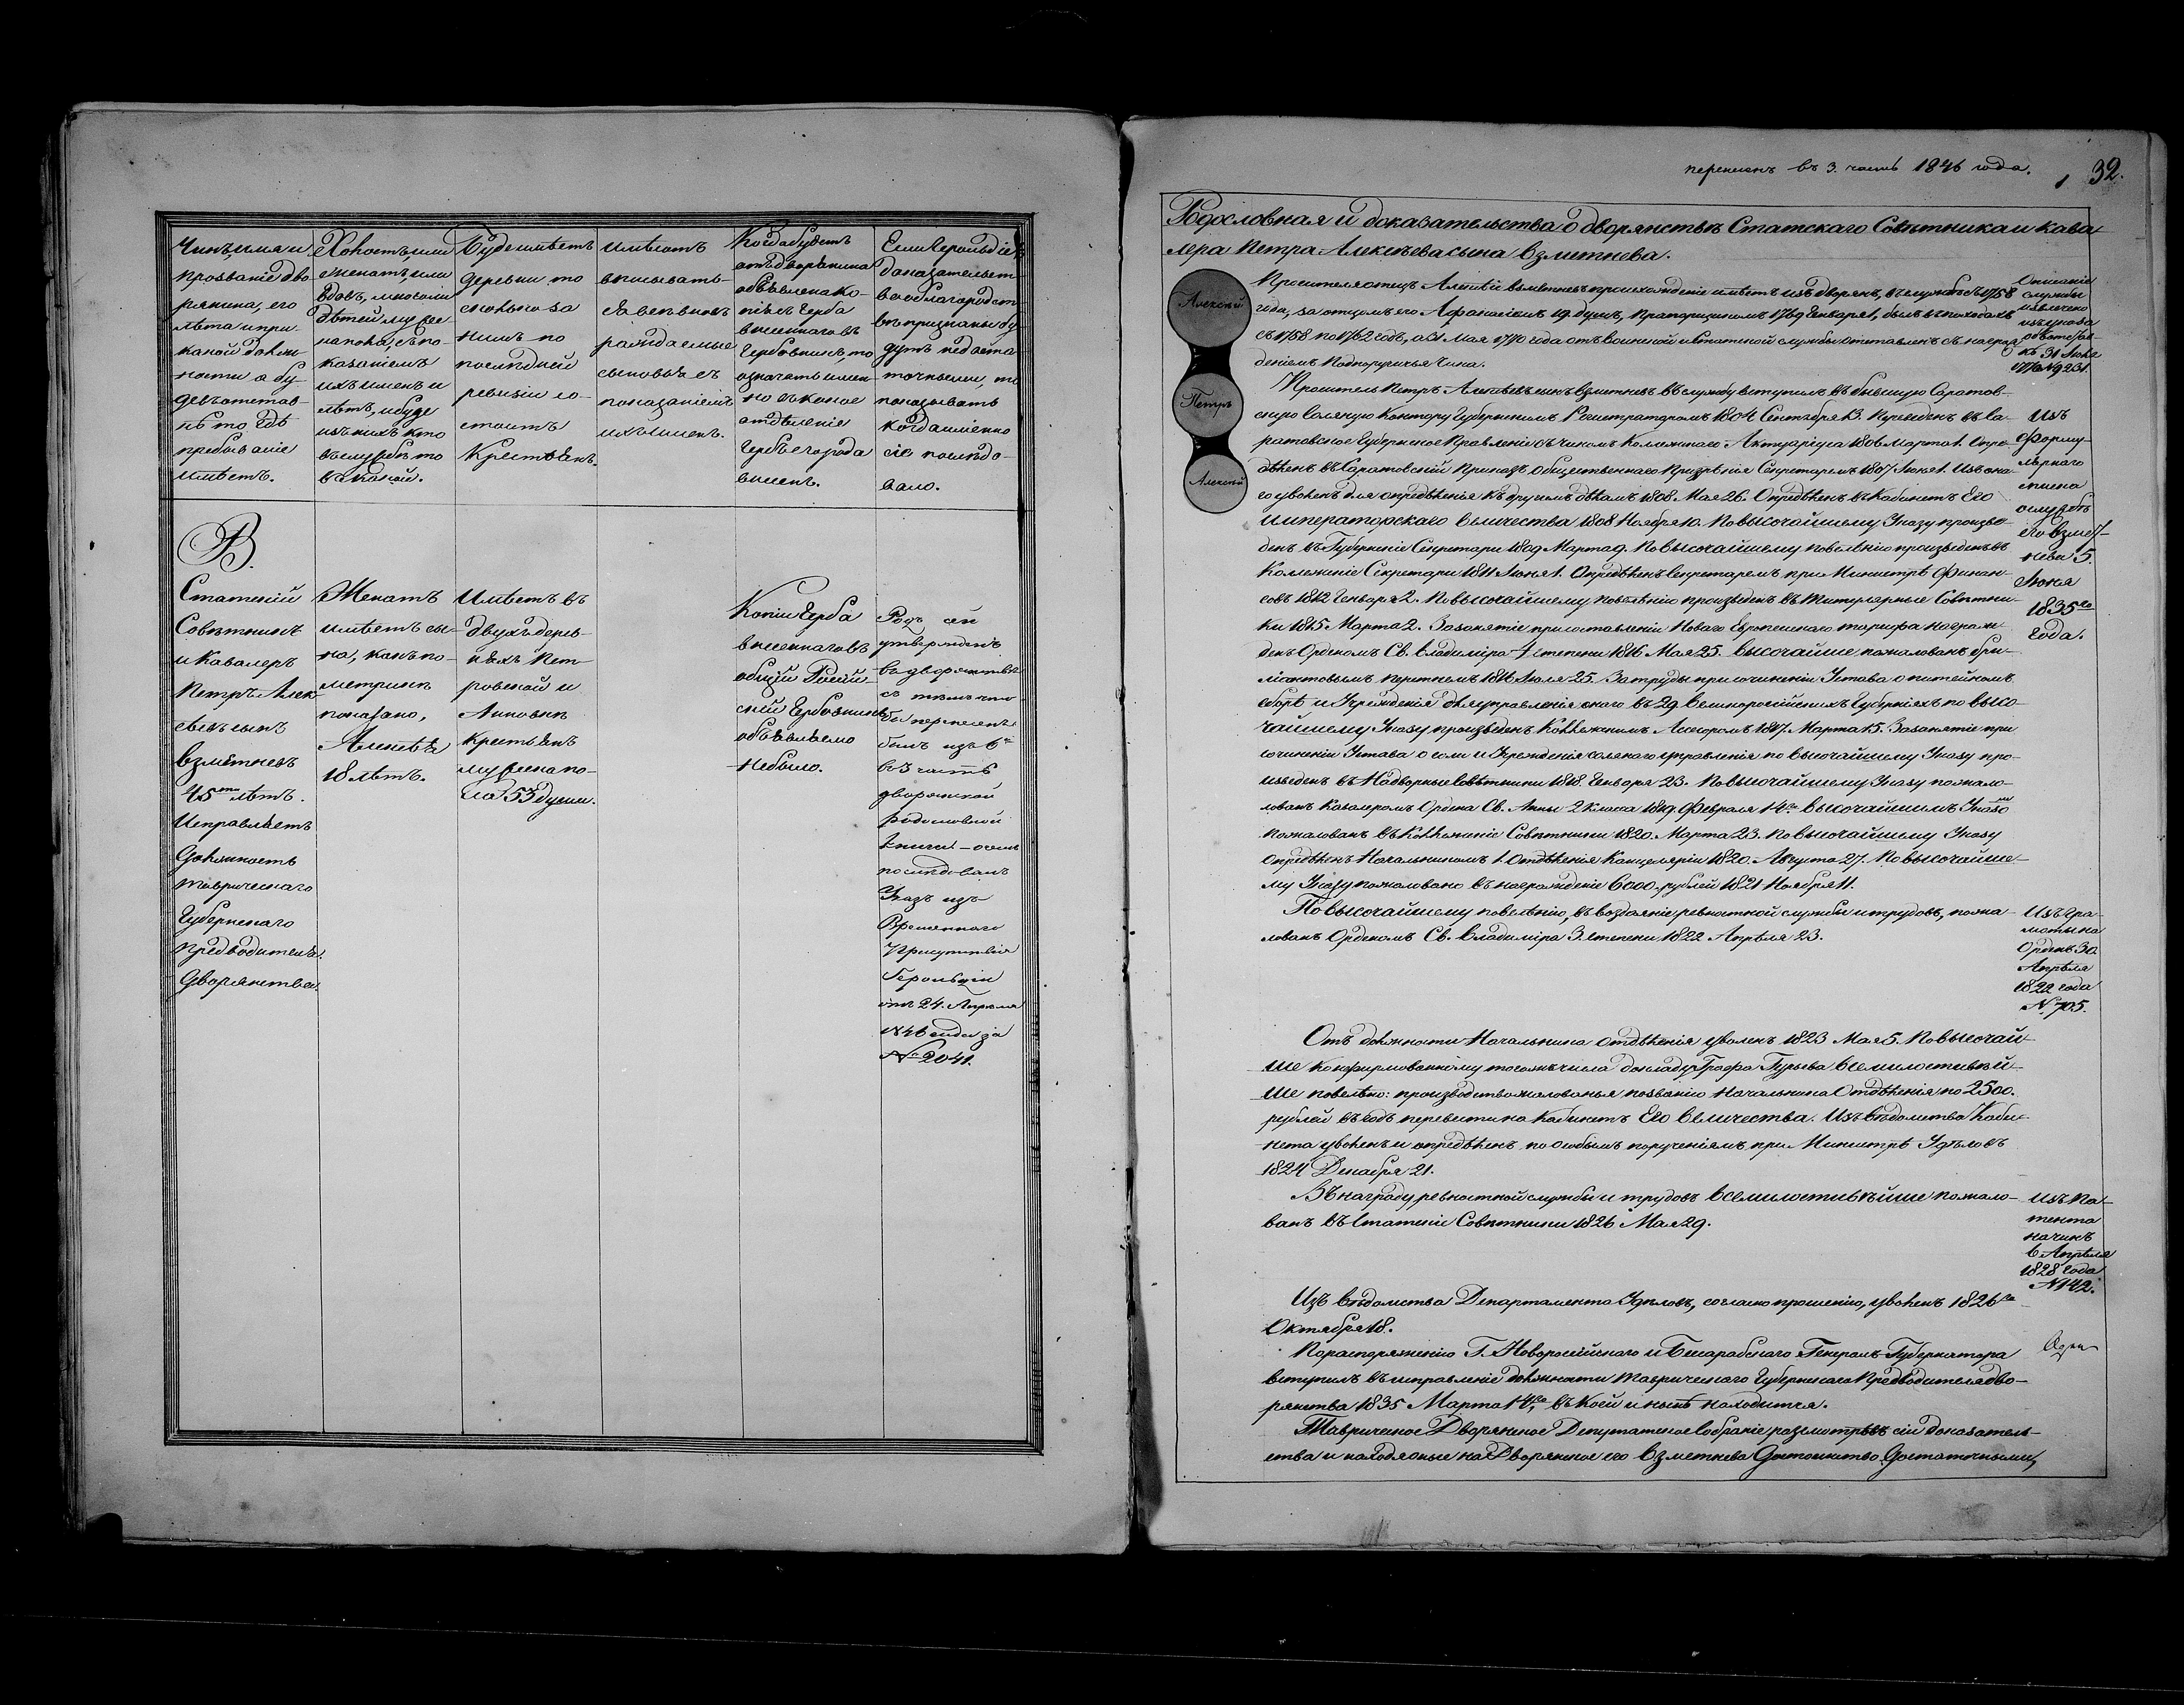 Чинъ, имя и
прозваніе дво-
рянина, его
лѣта и при
какой долж-
ности а бу-
детъ отстав-
ной то гдѣ
пребываніе
имѣетъ.
Холостъ, или
женатъ, или
вдовъ, многоли
дѣтей муже-
ска пола, съ по-
казаніемъ
ихъ именъ и
лѣтъ, и буде
изъ нихъ кто
въ службѣ то
въ какой.
Буде имѣетъ
деревни то
сколько за
нимъ по
послѣдней
ревизіи со-
стоитъ
Крестьянъ.
Имѣютъ
вписывать-
ся вѣ вновь
раждаемые
сыновья съ
показаніемъ
ихъ именъ.
Когда будетъ
отъ дворянина
объявлена ко-
пія съ Герба
внесеннаго въ
Гербовникъ, то
означать имян-
но въ какое
отдѣленіе
Гербъ его рода
внесенъ.
Если Герольдіею
доказательст-
ва о благородст-
вѣ признаны бу-
дутъ недоста-
точными, то
показывать
когда именно
сіе послѣдо-
вало.
В.
Статскій
Совѣтникъ
и Кавалеръ
Петръ Алек-
сѣевъ сынъ
Взмѣтневъ
45ти лѣтъ.
Исправляетъ
Должность
Таврическаго
Губернскаго
Предводителя
Дворянства.
Женатъ
имѣетъ сы-
на, какъ по
метрикѣ
показано,
Алексѣя
18 лѣтъ.
Имѣетъ въ
двухъ дерев-
няхъ Пет-
ровской и
Анновкѣ
крестьянъ
мужеска по-
ла 53 души.
Копіи Герба
внесеннаго въ
общій Россій-
скій Гербовникъ
объявляемо
не было.
Родъ сей
утвержденъ
въ дворянствѣ
съ тѣмъ что
бы перенесенъ
былъ изъ 6й
въ 3 часть
дворянской
родословной
Книги – о чемъ
послѣдовалъ
Указъ изъ
Временнаго
Присутствія
Герольдіи
отъ 24. Апрѣля
1846 года за
№ 2041.
перенесенъ въ 3. часть 1846 года.
1 32.
Родословная и доказательства о дворянствѣ Статскаго Совѣтника и Кава-
лера Петра Алексѣева сына Взметнева.
Алексѣй
Петръ
Алексѣй
Просителя отецъ Алексѣй Взметневъ происхожденіе имѣетъ изъ дворянъ, въ службѣ съ 1758
года, за отцомъ его Афанасіемъ 19 душъ, Прапорщикомъ 1769 Генваря 1, былъ въ походахъ
съ 1758 по 1762 годъ, а 31 Мая 1770 года отъ воинской и статской службы отставленъ съ награж-
деніемъ Подпоручичья Чина.
Описаніе
службы
извлечено
изъ указа
объ отстав-
кѣ 31 Мая
1770 № 9231.
Проситель Петръ Алексѣевъ сынъ Взметневъ въ службу вступилъ въ бывшую Саратов-
скую соляную Контору Губернскимъ Регистраторомъ 1804 Сентября 13. Переведенъ въ Са-
ратовское Губернское Правленіе съ чиномъ Коллежскаго Актуаріуса 1806 Марта 1. Опре-
дѣленъ въ Саратовскій Приказъ общественнаго Призрѣнія Секретаремъ 1807 Июня 1. Изъ она-
го уволенъ для опредѣленія къ другимъ дѣламъ 1808. Мая 26. Опредѣленъ въ Кабинетъ Его
Императорскаго Величества 1808 Ноября 10. По Высочайшему Указу произве-
денъ въ Губернскіе Секретари 1809 Марта 9. По Высочайшему повелѣнію произведенъ въ
Коллежскіе Секретари 1811 Июня 1. Опредѣленъ Секретаремъ при Министрѣ Финан-
совъ 1812 Генваря 2. По Высочайшему повелѣнію произведенъ въ Титулярные Совѣтни-
ки 1815 Марта 2. За занятіе при составленіи Новаго Европейскаго тарифа награж-
денъ Орденомъ Св. Владиміра 4 степени 1816 Мая 25. Высочайше пожалованъ бри-
ліантовымъ перстнемъ 1816 Июля 25. За труды при сочиненіи Устава о питейномъ
сборѣ и Учрежденія для управленія онаго въ 29 Великороссійскихъ Губерніяхъ по Высо-
чайшему Указу произведенъ Коллежскимъ Ассесоромъ 1817. Марта 15. За занятіе при
сочиненіи Устава о соли и Учрежденія солянаго управленія по Высочайшему Указу про-
изведенъ въ Надворные Совѣтники 1818. Генваря 23. По Высочайшему Указу пожало-
ванъ Кавалеромъ Ордена Св. Анны 2 Класса 1819 Февраля 14го. Высочайшимъ Указомъ
пожалованъ въ Коллежскіе Совѣтники 1820. Марта 23. По Высочайшему Указу
опредѣленъ Начальникомъ 1 Отдѣленія Канцеляріи 1820. Августа 27. По Высочайше-
му Указу пожаловано въ награжденіе 6000 рублей 1821 Ноября 11.
Изъ
формy-
лярнаго
списка
о службѣ
его Взмет-
нева 5.
Июня
1835го
года.
По Высочайшему повелѣнію, въ воздаяніе ревностной службы и трудовъ, пожа-
лованъ Орденомъ Св. Владиміра 3 степени 1822 Апрѣля 23.
Изъ гра-
моты на
Орденъ 30
Апрѣля
1822 года
№ 705.
Отъ должности Начальника Отдѣленія уволенъ 1823 Мая 5. По Высочай-
ше конфирмованному того же числа докладу Графа Гурьева Всемилостивѣй-
ше повелѣно: производство жалованья по званію Начальника Отдѣленія по 2500.
рублей въ годъ перевести на Кабинетъ Его Величества. Изъ Вѣдомства Каби-
нета уволенъ и опредѣленъ по особымъ порученіямъ при Министрѣ Удѣловъ
1824 Декабря 21.
Въ награду ревностной службы и трудовъ Всемилостивѣйше пожало-
ванъ въ Статскіе Совѣтники 1826 Мая 29.
Изъ Па-
тента
на чинъ
6 Апрѣля
1828 года
№ 142.
Изъ Вѣдомства Департамента Удѣловъ, согласно прошенію, уволенъ 1826го
Октября 18.
По распоряженію Г. Новороссійскаго и Бессарабскаго Генералъ-Губернатора
вступилъ въ исправленіе должности Таврическаго Губернскаго Предводителя дво-
рянства 1835 Марта 14го, въ коей и нынѣ находится.
Таврическое Дворянское Депутатское Собраніе разсмотрѣвъ сіи доказатель-
ства и находя оные на Дворянское его Взметнева Достоинство Достаточными,